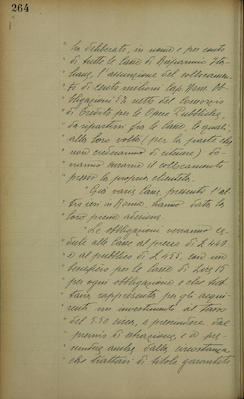 264
" ha deliberato, in nome e per conto
" di tutte le Casse di Risparmio Ita-
" liane, l'assunzione del collocamen-
" to di cento milioni cap. nom. Ob-
" bligazioni 5% nette del Consorzio
" di Credito per le Opere Pubbliche,
" da ripartirsi fra le Casse, le quali,
" alla loro volta, (per la parte che
" non crederanno di ritenere) do-
" vranno curarne il collocamento
" presso la propria clientela.
" Già varie Casse, presenti l'al-
" tro ieri in Roma, hanno dato la
" loro piena adesione.
" Le obbligazioni verranno ce-
" dute alle Casse al prezzo di £ 440
" e al pubblico di £ 455, con un
" beneficio per le Casse di Lire 15
" per ogni obbligazione e che tut-
" tavia rappresenta per gli acqui-
" renti un investimento al tasso
" del 5.50 circa, a prescindere dal
" premio di estrazione, e a pre-
" scindere anche dalla circostanza
" che trattasi di titolo garantito